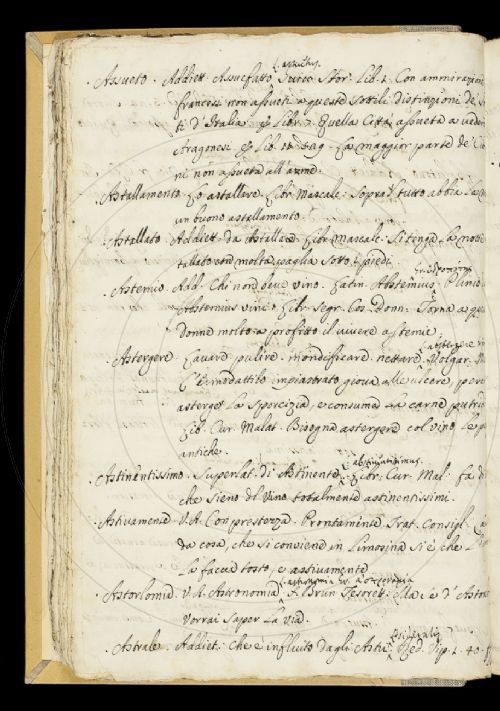 Assueto. Addiett. Assuefatto. assuetus. Stor. Lib. 1. Con ammirazione
francesi non assueti a queste sottili distinzioni de
ti d'Italia. Libr. 7. Quella Città assueta a veder
Aragonesi Lib. La maggior parte de'
ni non assueta all'arme.
Astallamento. Lo astallare. Libr. Mascalc. Sopra tutto abbia
un buono astallamento.
Astallato. Addiett. da Astallare. Libr. Mascalc. Si tenga la notte
tallato con molta paglia sotto i piedi.
Astemio. Add. Chi non beve vino. Latin. Abstemius. Plinio
Abstemius vini. Libr. Segr. Cos. Donn. Torna a
Donne molto a profitto il vivere astemie.
Astergere. Lavare, pulire, mondificare, nettare. abstergere Volgar.
L'ermodattilo impiastrato giova alle ulcere, però
asterge la sporcizia, e consuma la carne putrida
Lib. Cur. Malat. Bisogna astergere col vino le
antiche.
Astinentissimo. Superlat. di Astinente. abstinentissimus. Libr. Cur. Mal. fa di
che sieno dl vino totalmente astinentissimi.
Astivamente. V.A. Con prestezza. Prontamente. Trat. Consigl.
da cosa, che si conviene in Limosina si è che
la faccia tosto, e astivamente.
Astorlomia. V.A. Astronomia. astronomia Gr. ἀστρονομία F. Brun. Tesorett. Ma s'è d'Astor
Vorrai saper la via.
Astrale. Addiet. Che è influito dagli Astri. Sideralis. Red. Vip. 1. 40.